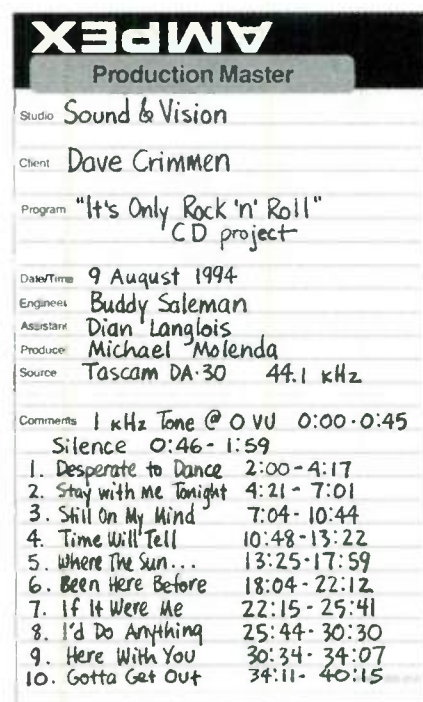 AMPEX
Production Master
Studio Sound & Vision
Client Dave Crimmen
Program "It's Only Rock 'n' Roll"
CD project
Date/Time 9 August 1994
Engineer Buddy Saleman
Assistant Dian Langlois
Producer Michael Molenda
Source Tascam DA-30 44.1 kHz
Comments 1 kHz Tone @ 0 VU 0:00-0:45
Silence 0:46-1:59
1. Desperate to Dance 2:00-4:17
2. Stay with me Tonight 4:21-7:01
3. Still On My Mind 7:04-10:44
4. Time Will Tell 10:48-13:22
5. Where The Sun... 13:25-17:59
6. Been Here Before 18:04-22:12
7. If It Were Me 22:15-25:41
8. I'd Do Anything 25:44-30:30
9. Here With You 30:34-34:07
10. Gotta Get Out 34:11-40:15